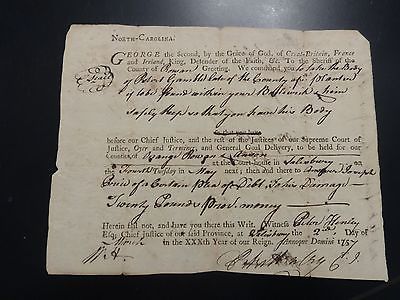 NORTH-CAROLINA.
GEORGE the Second, by the Grace of God, of Great-Britain, France
and Ireland, King, Defender of the Faith, &c. To the Sheriff of the
County of Rowan Greeting. We command you to take the Body
of Robert Gamble late of the County afs. Planter
if to be found within your Bailiwick & him
safely keep so that you have his Body
before our Chief Justice, and the rest of the Justices of our Supreme Court of
Justice, Oyer and Terminer, and General Goal Delivery, to be held for our
Counties of Orange Rowan & Anson
at the Court-house in Salisbury on
the Fourth Tuesday in May next; then and there to answer Joseph
of a Certain plea of Debt to his Damage
Twenty Pounds procl. money
Herein fail not, and have you there this Writ. Witness Peter Henley
Esq; Chief Justice of our said Province, at Salisbury the 2nd Day of
March in the XXXth Year of our Reign. Annoque Domini 1757
P. Henley C. J.